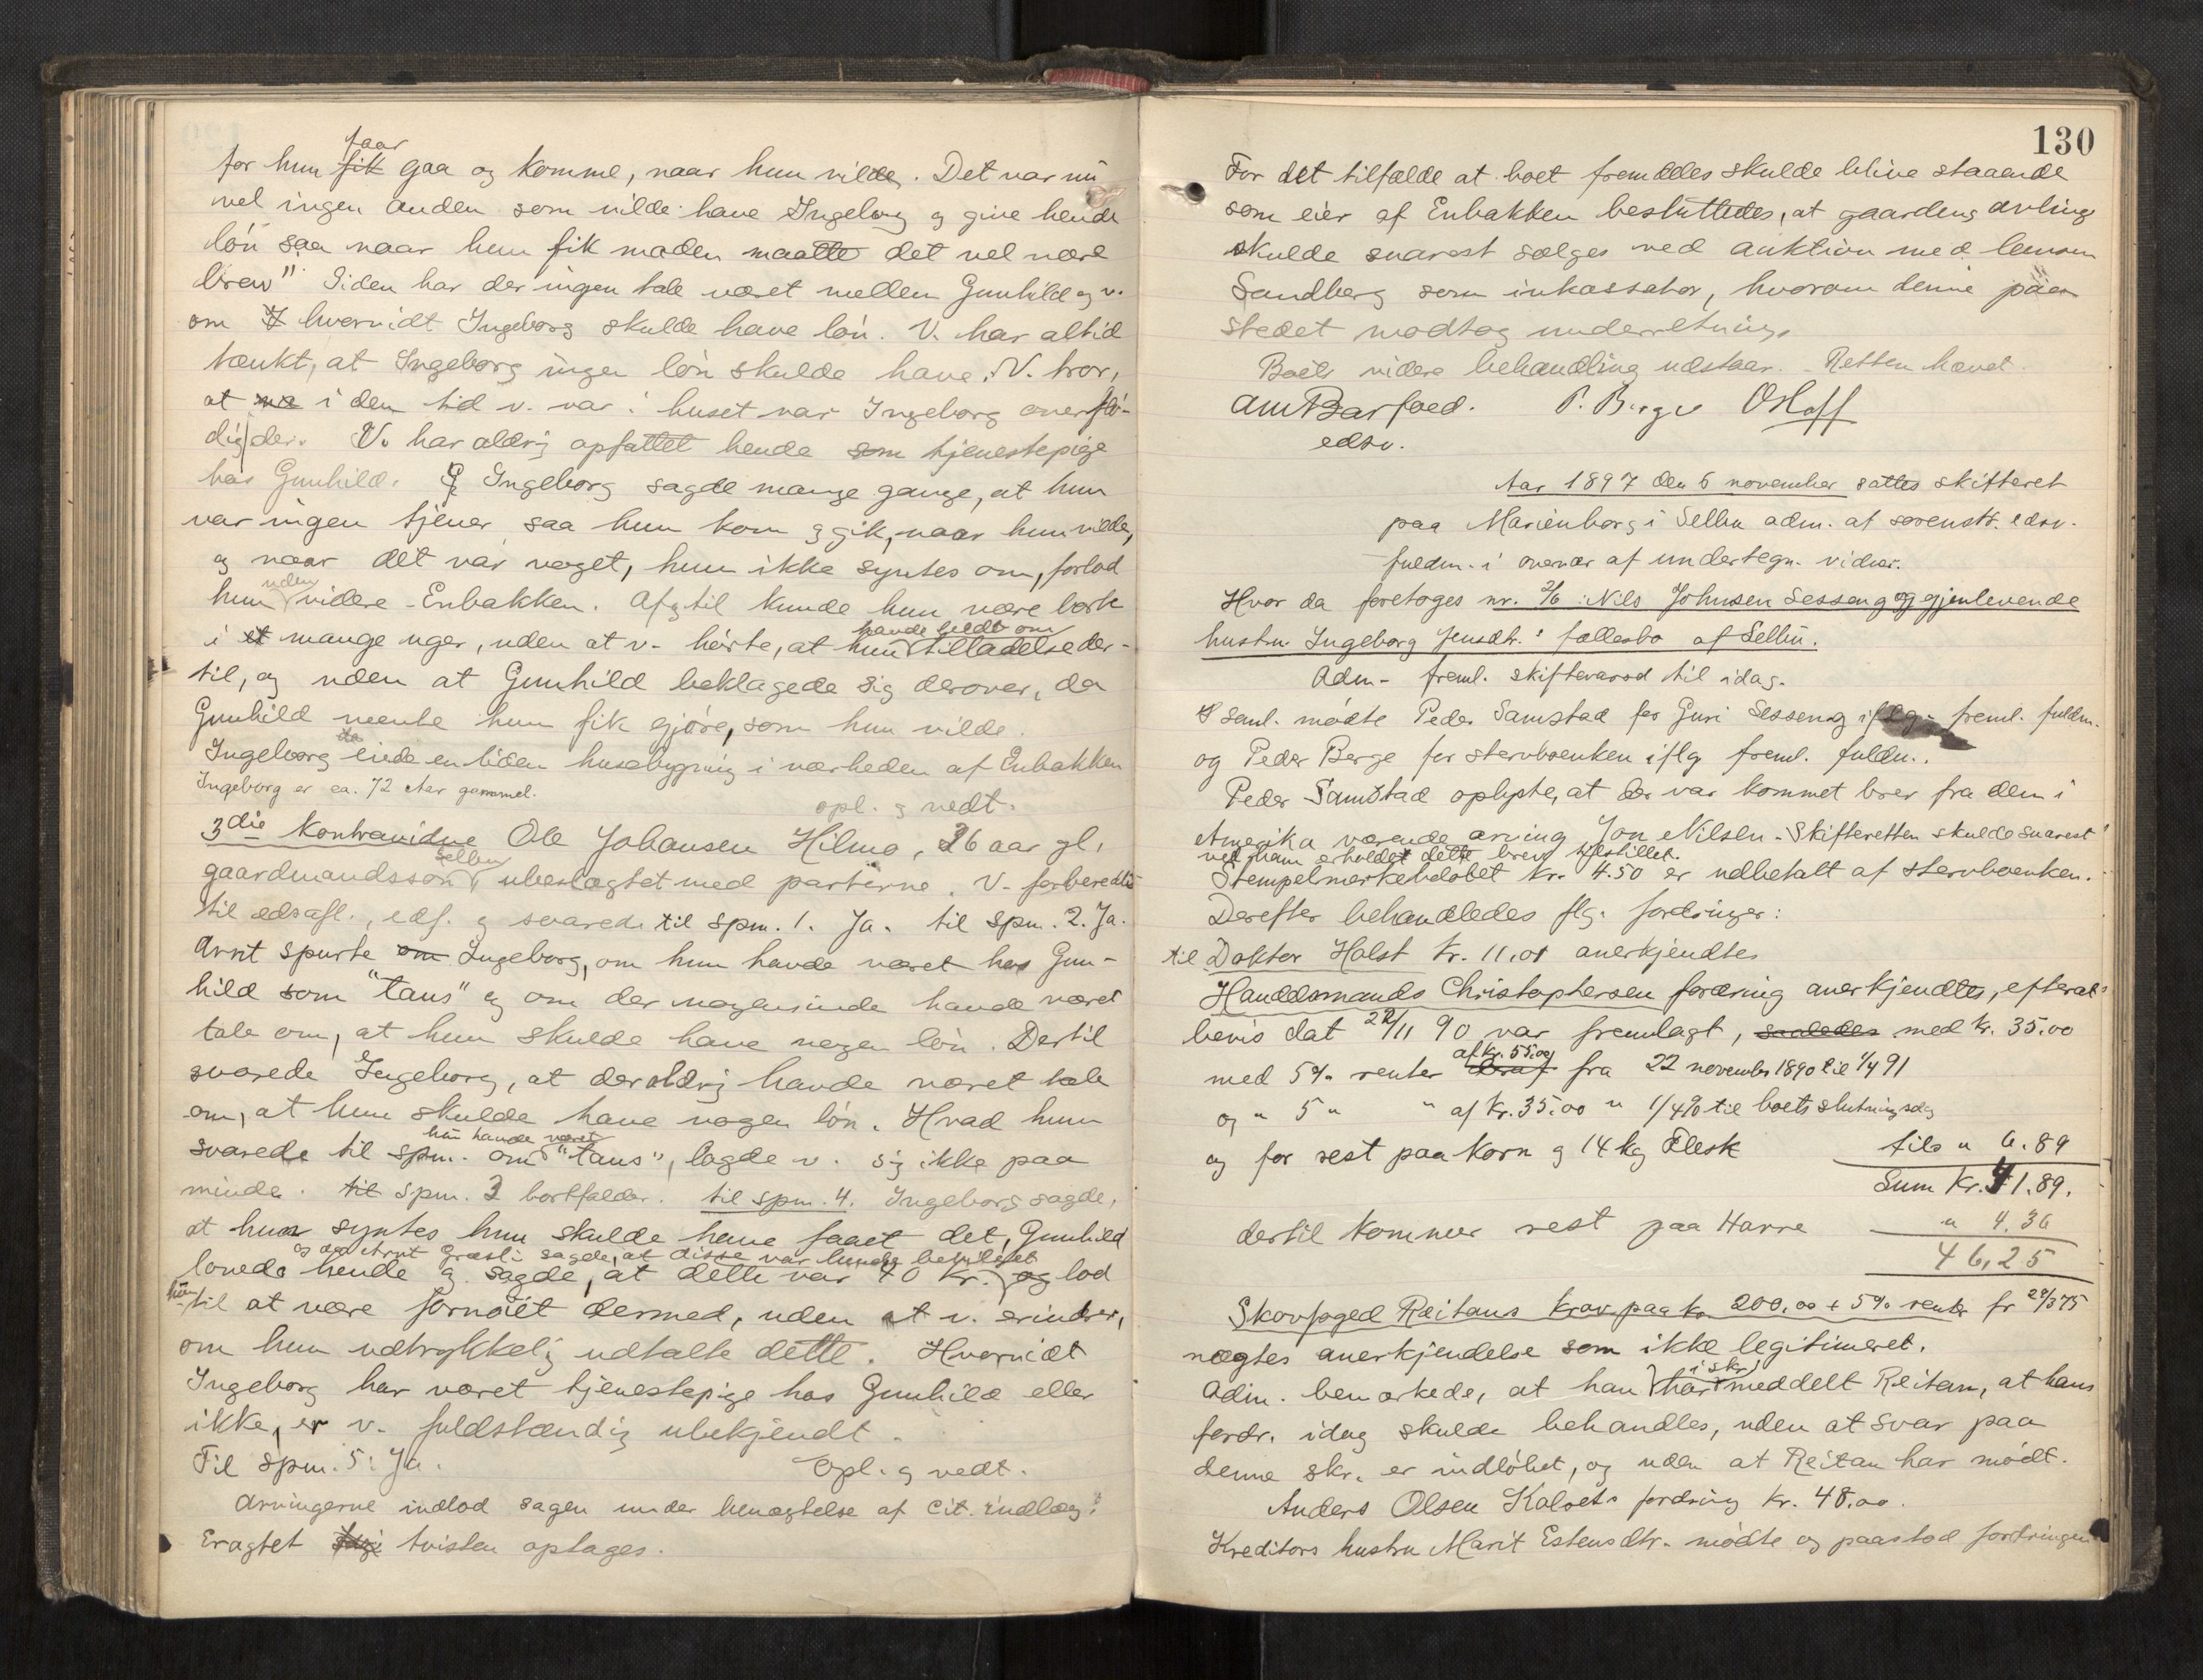 for hun fik faar gaa og komme, naar hun vilde. Det var nu
vel ingen anden som vilde have Ingeborg og give hende
løn saa naar hun fik maden maatte det vel være
bra". Siden har der ingen tale været mellem Gunhild og v.
om hvorvidt Ingeborg skulde have løn. V. har altid
tænkt, at Ingeborg ingen løn skulde have. V. tror,
at i den tid v. var i huset var Ingeborg overflø-
dig der. V. har aldrig opfattet hende som tjenestepige
hos Gunhild. Ingeborg sagde mange gange, at hun
var ingen tjener saa hun kom og gik, naar hun vilde,
og naar det var noget, hun ikke syntes om, forlod
hun uden videre Enbakken. Af og til kunde hun være bork
i et mange uger, uden at v. hørte, at hun havde bedt om tilladelse der-
til, og uden at Gunhild beklagede sig derover, da
Gunhild mente hun fik gjøre, som hun vilde.
Ingeborg eiede en liden husebygning i nærheden af Enbakken
Ingeborg er ca. 72 Aar gammel.
opl. og vedt.
3die Kontravidne Ole Johansen Hilmo, 26 aar gl.
gaardmandssøn Selbu ubeslægtet med parterne. V. forberedtes
til edsafl., edf. og svarede til spm. 1. Ja. til spm. 2. Ja.
Arnt spurte om Ingeborg, om hun havde været hos Gun-
hild som "taus" og om der nogensinde havde været
tale om, at hun skulde have nogen løn. Dertil
svarede Ingeborg, at der aldrig havde været tale
om, at hun skulde have nogen løn. Hvad hun
svarede til spm. om hun havde været "taus", lagde v. sig ikke paa
minde. til spm. 3 bortfalder. til spm. 4. Ingeborg sagde,
at hun syntes hun skulde have faaet det, Gunhild
og da Arnt Græsli sagde, at disse var hende bevilget
lovede hende og sagde, at dette var 40 kr. og lod
hun til at være fornøiet dermed, uden at v. erindrer,
om hun udtrykkelig udtalte dette. Hvorvidt
Ingeborg har været tjenestepige hos Gunhild eller
ikke, er v. fuldstændig ubekjendt.
Til spm. 5: Ja. Opl. og vedt.
Arvingerne indlod sagen under benægtelse af cit. indlæg.
Eragtet tvisten optages.
130
For det tilfælde at boet fremdeles skulde blive staaende
som eier af Enbakken besluttedes, at gaardens avling
skulde snarest sælges ved auktion med lensm
Sandberg som inkassator, hvorom denne paa
stedet modtog underretning.
Boets videre behandling udstaar. Retten hævet.
Am Barfoed. P. Berge OHoff
edsv.
Aar 1897 den 6 november sattes skifteret
paa Marienborg i Selbu adm. af sorenskr. edsv.
fuldm. i overvær af undertegn. vidner.
Hvor da foretoges nr. 2/6: Nils Johnsen Sesseng og gjenlevende
hustru Ingeborg Jensdtr.s fællesbo af Selbu.
Adm. freml. skiftevarsel til idag.
I saml. mødte Peder Samstad for Guri Sesseng iflg. freml. fuldm.
og Peder Berge for stervboenken iflg freml. fuldm.
Peder Samstad oplyste, at der var kommet brev fra dem i
Amerika værende arving Jon Nilsen. Skifteretten skulde snarest
ved ham erholdet dette brev tilstillet.
Stempelmærkebeløbet kr. 4.50 er udbetalt af stervboenken.
Derefter behandledes flg. fordringer:
til Doktor Holst kr. 11,01 anerkjendtes
Handelsmands Christophersen fordring anerkjendtes, efterat
bevis dat 22/11 90 var fremlagt, saaledes med kr. 35.00
med 5% renter deraf af kr. 55.00 fra 22 november 1890 til 1/4 91
og " 5 " " af kr. 35.00 " 1/4 90 til boets slutningsdag
og for rest paa korn og 14 kg Flesk tils " 6.89
Sum Kr. 41.89.
dertil kommer rest paa Harve " 4.36
46,25
Skovfoged Reitans krav paa kr. 200,00 + 5% renter fr 29/3 75
nægtes anerkjendelse som ikke legitimeret.
Adm. bemærkede, at han har i skr. meddelt Reitan, at hans
fordr. idag skulde behandles, uden at svar paa
denne skr. er indløbet, og uden at Reitan har mødt.
Anders Olsen Kalsets fordring kr. 48.00.
Kreditors hustru Marit Estensdtr. mødte og paastod fordringen